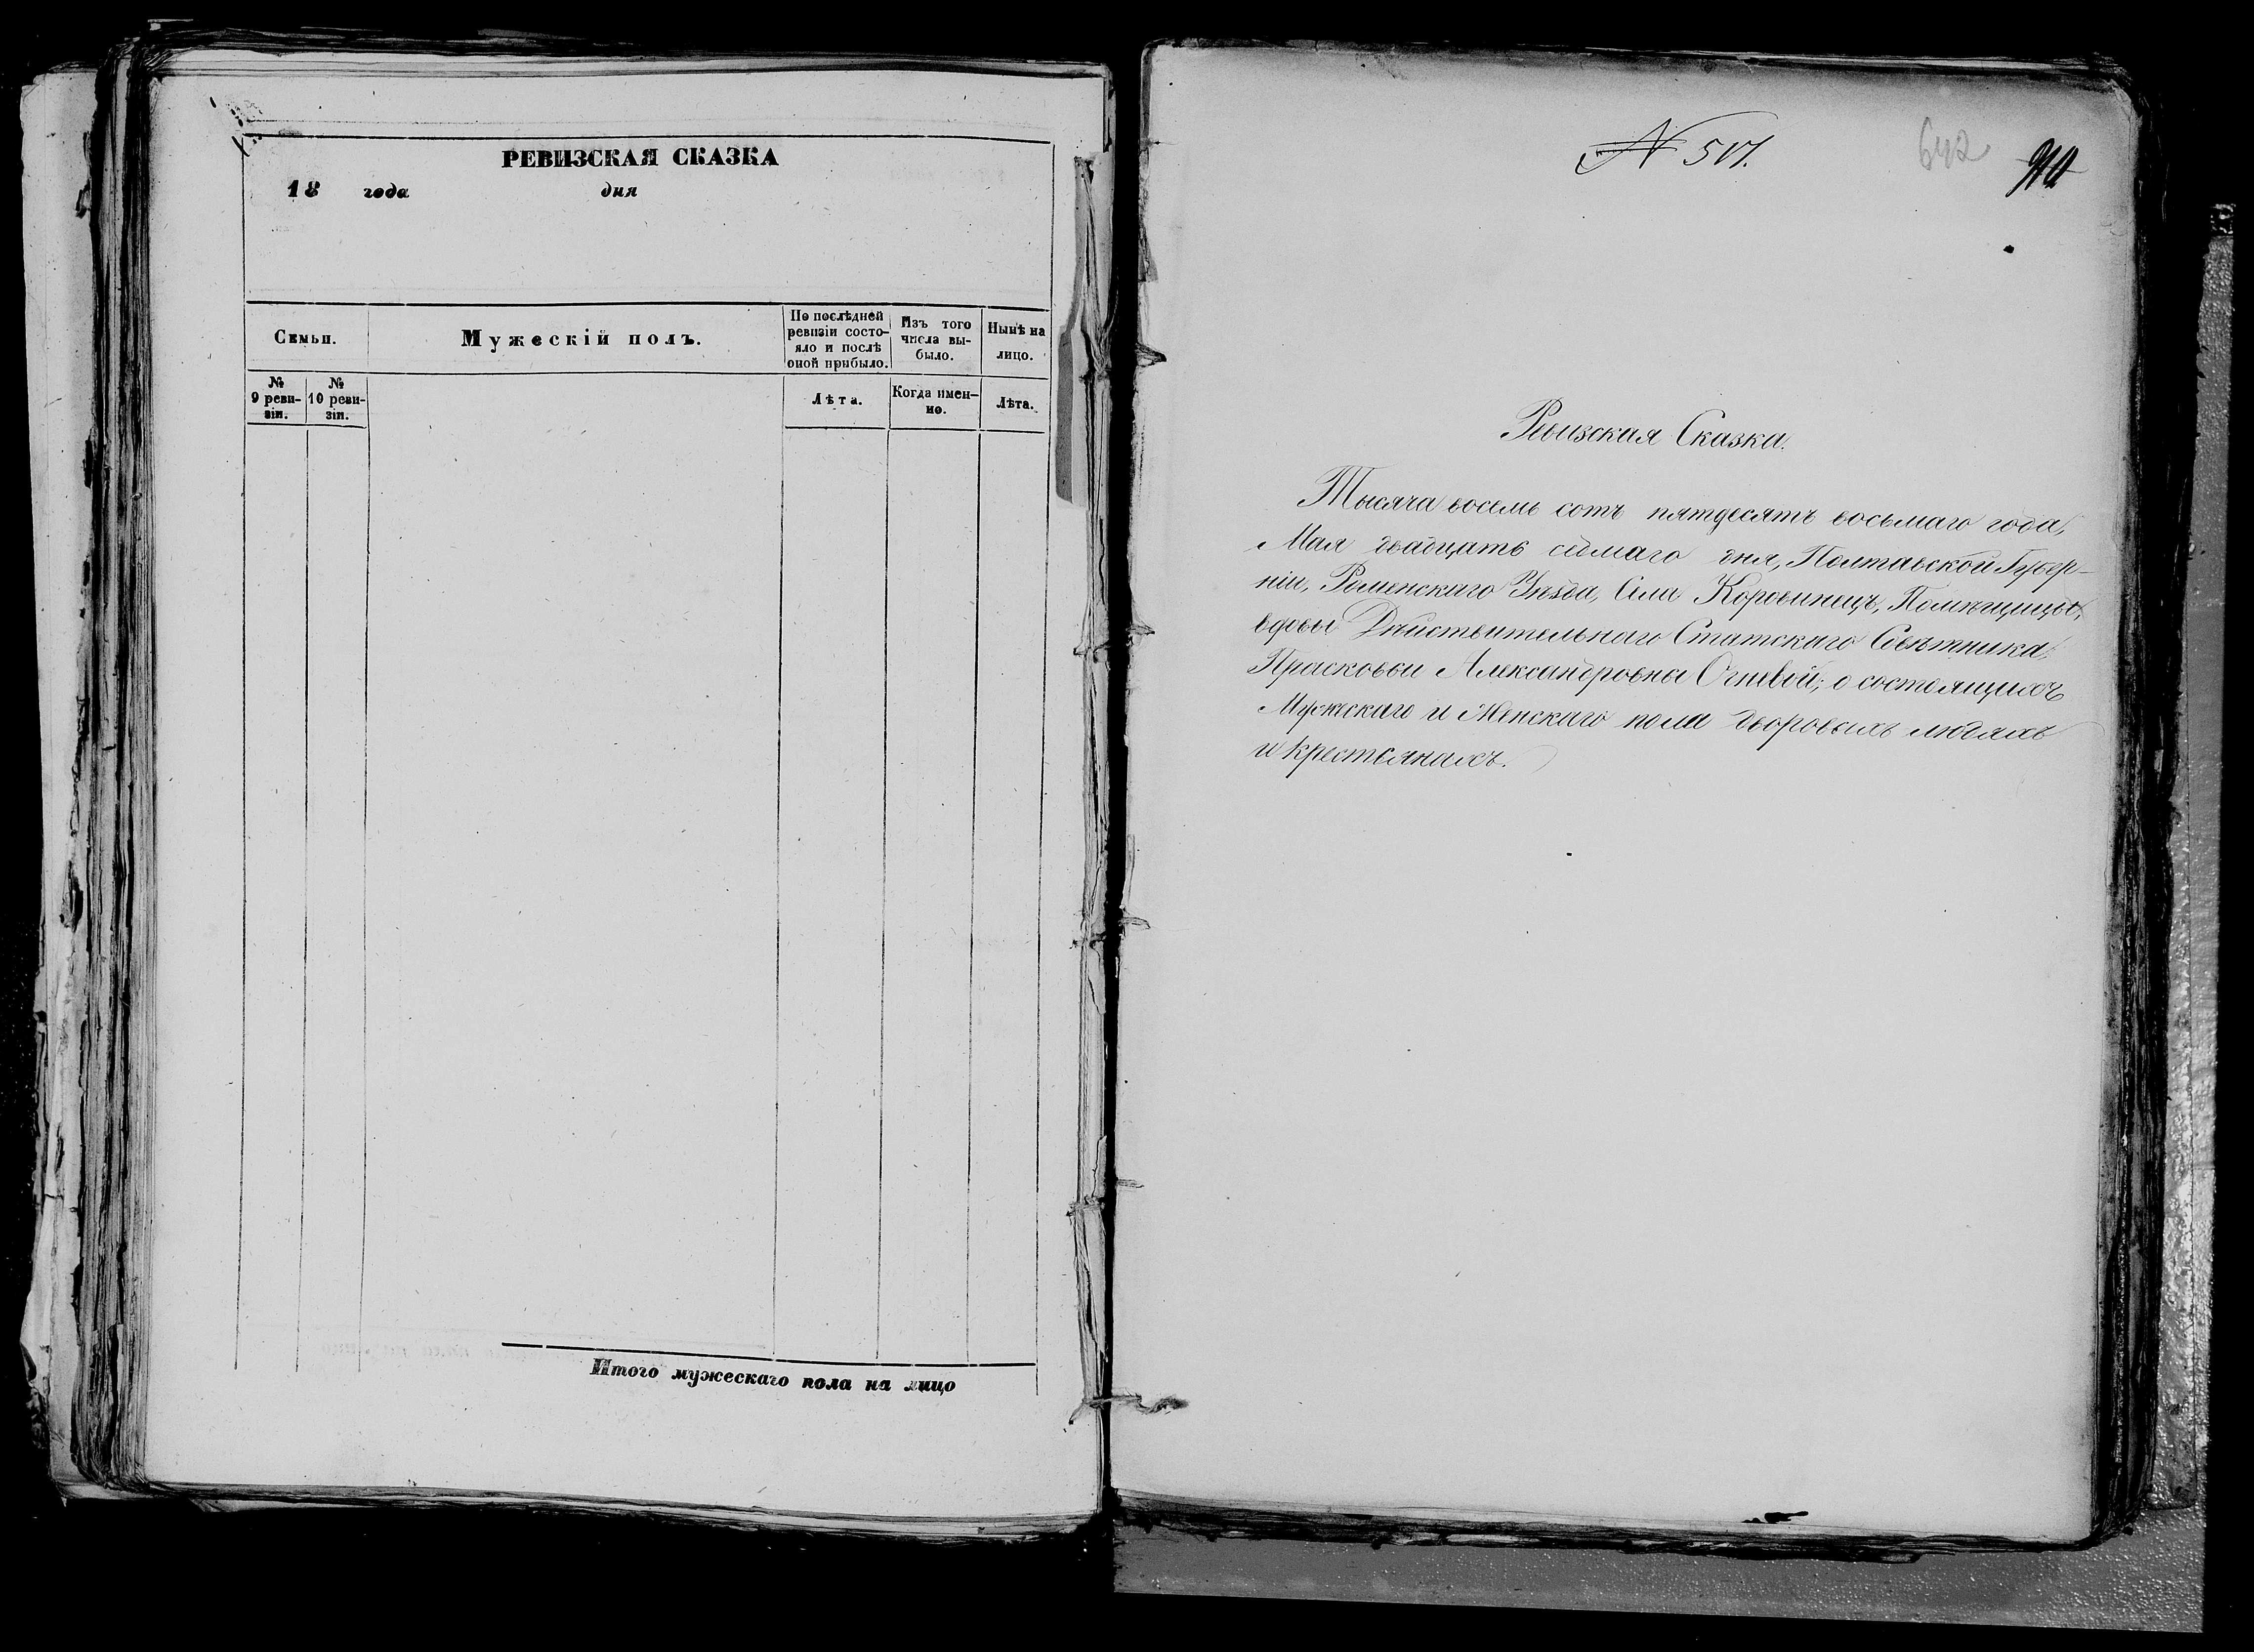 РЕВИЗСКАЯ СКАЗКА
18 года дня
Семьи.
Мужескій полъ.
По послѣдней
ревизіи состо-
яло и послѣ
оной прибыло.
Изъ того
числа вы-
было.
Нынѣ на
лицо.
№
9 реви-
зіи.
№
10 реви-
зіи.
Лѣта.
Когда имен-
но.
Лѣта.
Итого мужескаго пола на лицо
642
Ревизская Сказка.
Тысяча восемь сотъ пятдесятъ восьмаго года,
Мая двадцать седмаго дня, Полтавской Губер-
ніи, Роменскаго Уѣзда, Села Коровинецъ, Помѣщицы,
вдовы Дѣйствительнаго Статскаго Совѣтника,
Прасковьи Александровны Огневой; о состоящихъ
Мужескаго и Женскаго пола дворовыхъ людяхъ
и крестьянахъ.